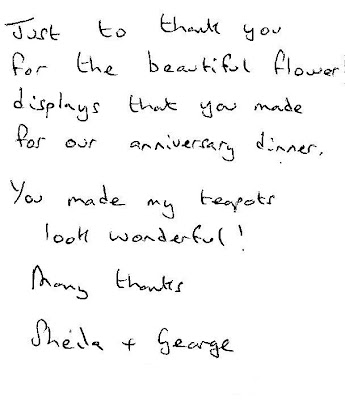 Just to thank you
for the beautiful flower
displays that you made
for our anniversary dinner.
You made my teapots
look wonderful!
Many thanks
Sheila + George